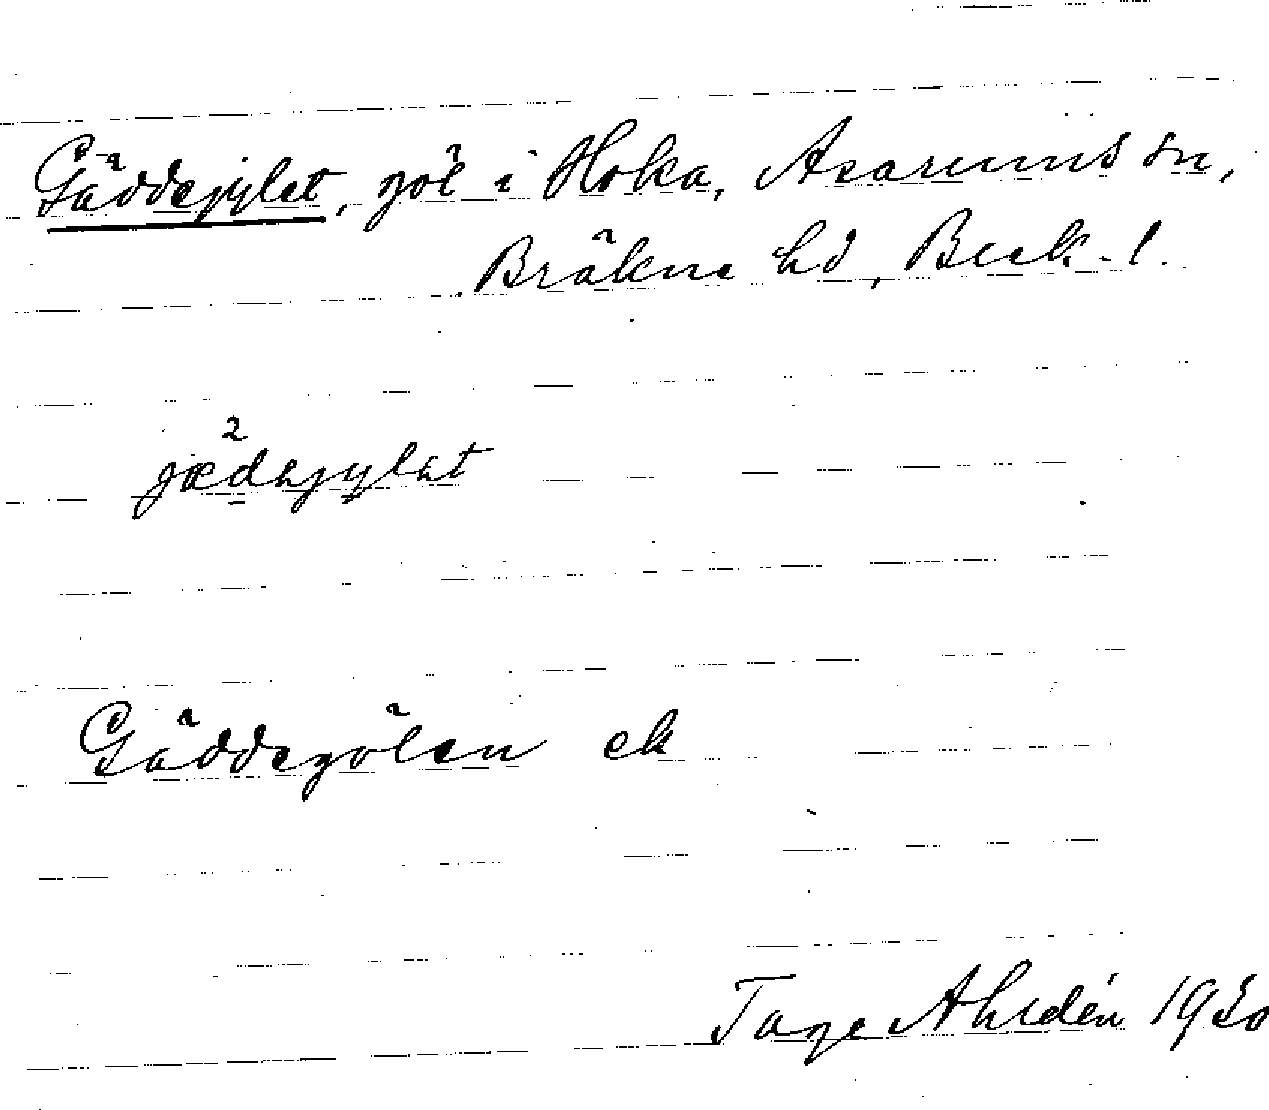 Gäddejylet, göl i Hoka, Asarums sn,
Bräkne hd, Blek. l.
jæ²dejylet
Gäddegölen ek
Tage Ahldén 1930